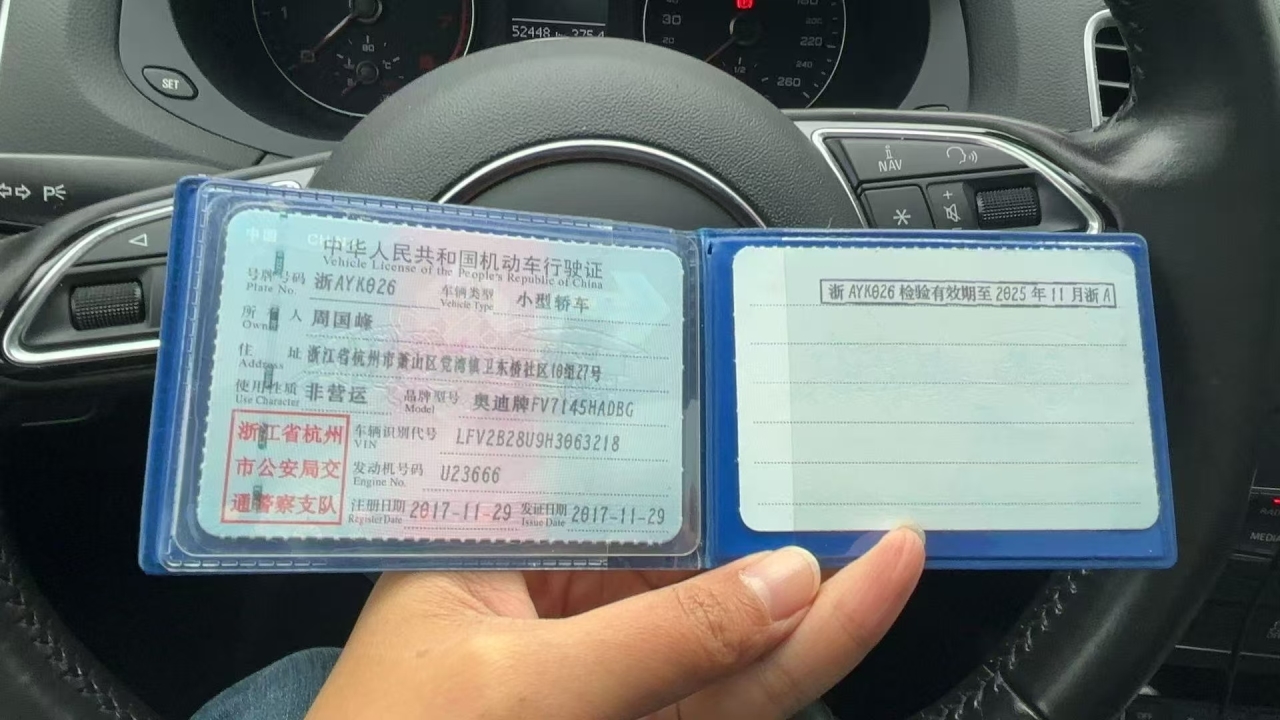 1
80
52448 km 375.4
30
20
1/2
220
240
260
SET
NAV
中国 CHINA
中华人民共和国机动车行驶证
Vehicle License of the People's Republic of China
号牌号码 浙AYK026 车辆类型 小型轿车
Plate No. Vehicle Type
所有人 周国峰
Owner
住 址 浙江省杭州市萧山区党湾镇卫东桥社区10组27号
Address
使用性质 非营运 品牌型号 奥迪牌FV7145HADBG
Use Character Model
浙江省杭州
市公安局交
通警察支队
车辆识别代号 LFV2B28U9H3063218
VIN
发动机号码 U23666
Engine No.
注册日期 2017-11-29 发证日期 2017-11-29
Register Date Issue Date
浙AYK026 检验有效期至 2025 年 11 月浙A
MEDIA